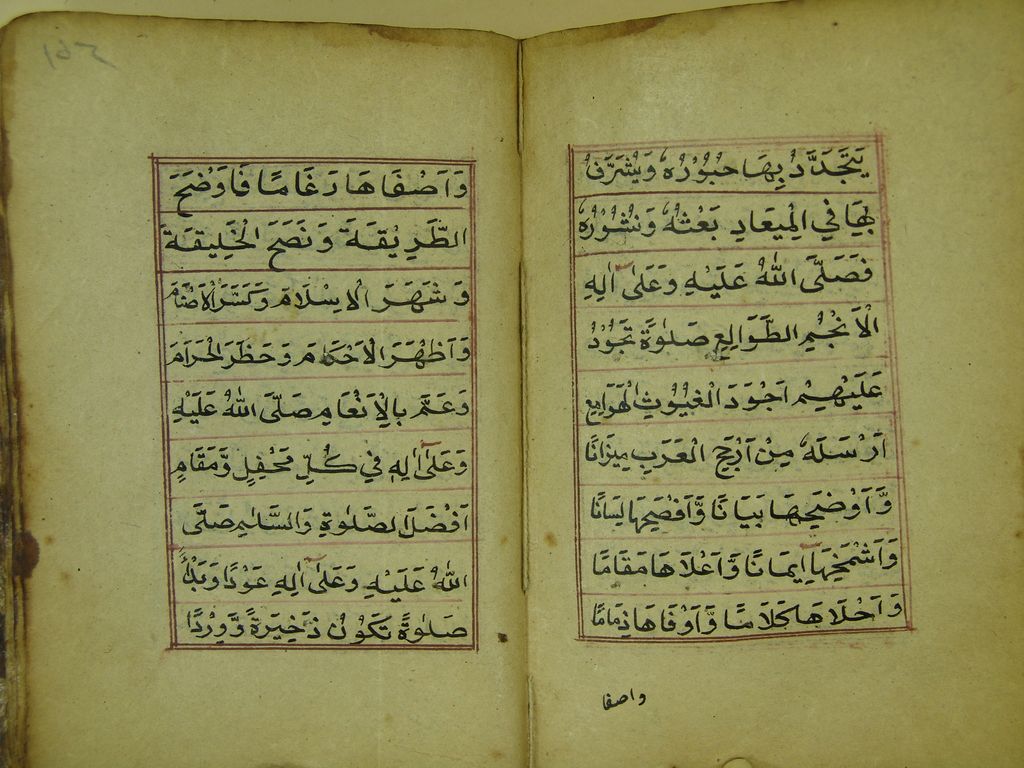 يَتَجَدَّدُ بِهَا حُبُوْرُهُ وَيُشَرَّفُ
بِهَا فِي الْمِيعَادِ بَعْثُهُ وَنُشُوْرُهُ
فَصَلَّى اللهُ عَلَيْهِ وَعَلَى اٰلِهِ
الْاَنْجُمِ الطَّوَالِعِ صَلٰوةً تَجُوْدُ
عَلَيْهِمْ اَجْوَدَ الْغُيُوْثِ الْهَوَامِعِ
اَرْسَلَهُ مِنْ اَرْجَحِ الْعَرَبِ مِيْزَانًا
وَّاَوْضَحِهَا بَيَانًا وَّاَفْصَحِهَا لِسَانًا
وَاَشْمَخِهَا اِيمَانًا وَّاَعْلَاهَا مَقَامًا
وَاَحْلَاهَا كَلَامًا وَّاَوْفَاهَا ذِمَامًا
واصفا
وَاَصْفَاهَا رَغَامًا فَاَوْضَحَ
الطَّرِيْقَةَ وَنَصَحَ الْخَلِيقَةَ
وَشَهَرَ الْاِسْلَامَ وَكَسَّرَ الْاَصْنَامَ
وَاَظْهَرَ الْاَحْكَامَ وَحَظَرَ الْحَرَامَ
وَعَمَّ بِالْاِنْعَامِ صَلَّى اللهُ عَلَيْهِ
وَعَلَى اٰلِهِ فِي كُلِّ مَحْفِلٍ وَّمَقَامٍ
اَفْضَلَ الصَّلٰوةِ وَالسَّلَامِ صَلَّى
اللهُ عَلَيْهِ وَعَلَى اٰلِهِ عَوْدًا وَبَدْأً
صَلٰوةً تَكُوْنُ ذَخِيْرَةً وَّوِرْدًا